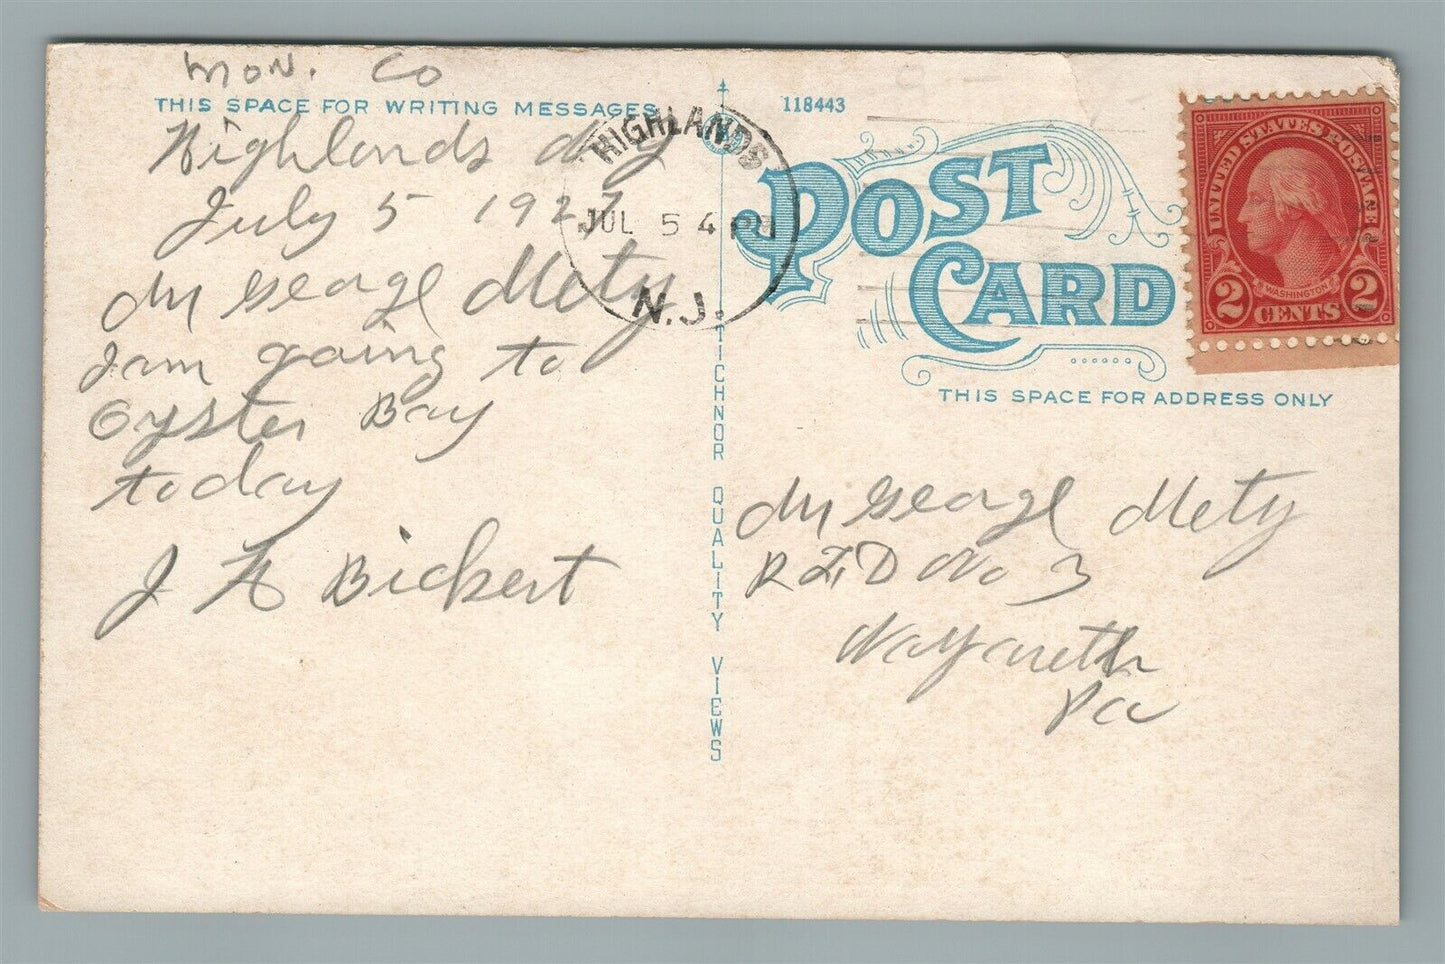 Mon. Co
THIS SPACE FOR WRITING MESSAGES
Highlands
July 5 1927
Mr George Mety
I am going to
Oyster Bay
today
J H Bickert
HIGHLANDS
JUL 5 4 PM
N.J.
TICHNOR QUALITY VIEWS
118443
POST
CARD
THIS SPACE FOR ADDRESS ONLY
UNITED STATES POSTAGE
WASHINGTON
2 CENTS 2
Mr George Mety
R F D No 3
Nazareth
Pa